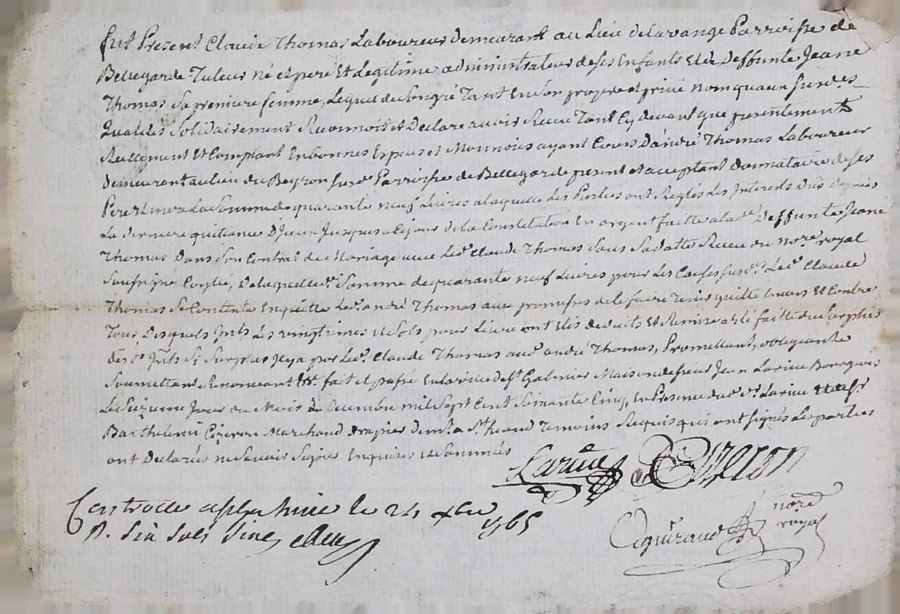 fut Present Claude Thomas Laboureur demeurant au Lieu de Lavange Parroisse de
Bellegarde Tuteur né et pere Et Legitime administrateur de ses Enfants Et de Deffunte Jeane
Thomas Sa premiere femme, Lequel de Son gré Tant En Son propre et privé nom qu'aux Susdes
qualités Solidairement Reconnoit et Declare avoir Receu Tant Cy devant que presentement
Reellement Et Comptant En bonnes Especes et Monnoies ayant Cours D'andré Thomas Laboureur
Demeurant au lieu du Beyron Susde Parroisse de Bellegarde present et acceptant Donnataire de ses
Pere et mere La Somme de quarante neuf Livres a laquelle les Parties ont Reglés Les Interets dus depuis
La derniere quittance D'Jceux Jusques a Ce jour de la Constitution En argent faitte a lade Deffunte Jeane
Thomas Dans Son Contrat de Mariage avec Led. Claude Thomas Sous Sa datte Receu du nore royal
Soussigné, De laquelle de Somme de quarante neuf Livres pour Les Causes Susd. Led. Claude
Thomas Se Contente En quitte Led. andré Thomas avec promesses de le faire Tenir quitte Envers Et Contre
Tous, Desquels Jnts Les vingtimes et Sols pour Livre ont étés deduits Et Remise a été faitte du Surplus
des Jnts Si Surplus Jl y a par Led. Claude Thomas aud. andré Thomas, Promettant, obligeants
Soumettant Renonceant fait et passé En la ville de St Galmier Maison de sieur Jean Larive Bourgeois
Le Seizieme Jour du Mois de Decembre mil Sept Cent Soixante Cinq, En Presence dud. Sr. Larive et de Sr
Barthelemi Marchand drapier demt a St heand Temoins Requis qui ont signés Les parties
ont Declarés ne Scavoir Signer Enquises et Sommés
Larive
nore
royal
Controllé a St galmier le 24 xbre 1765
R. Six Sols Six